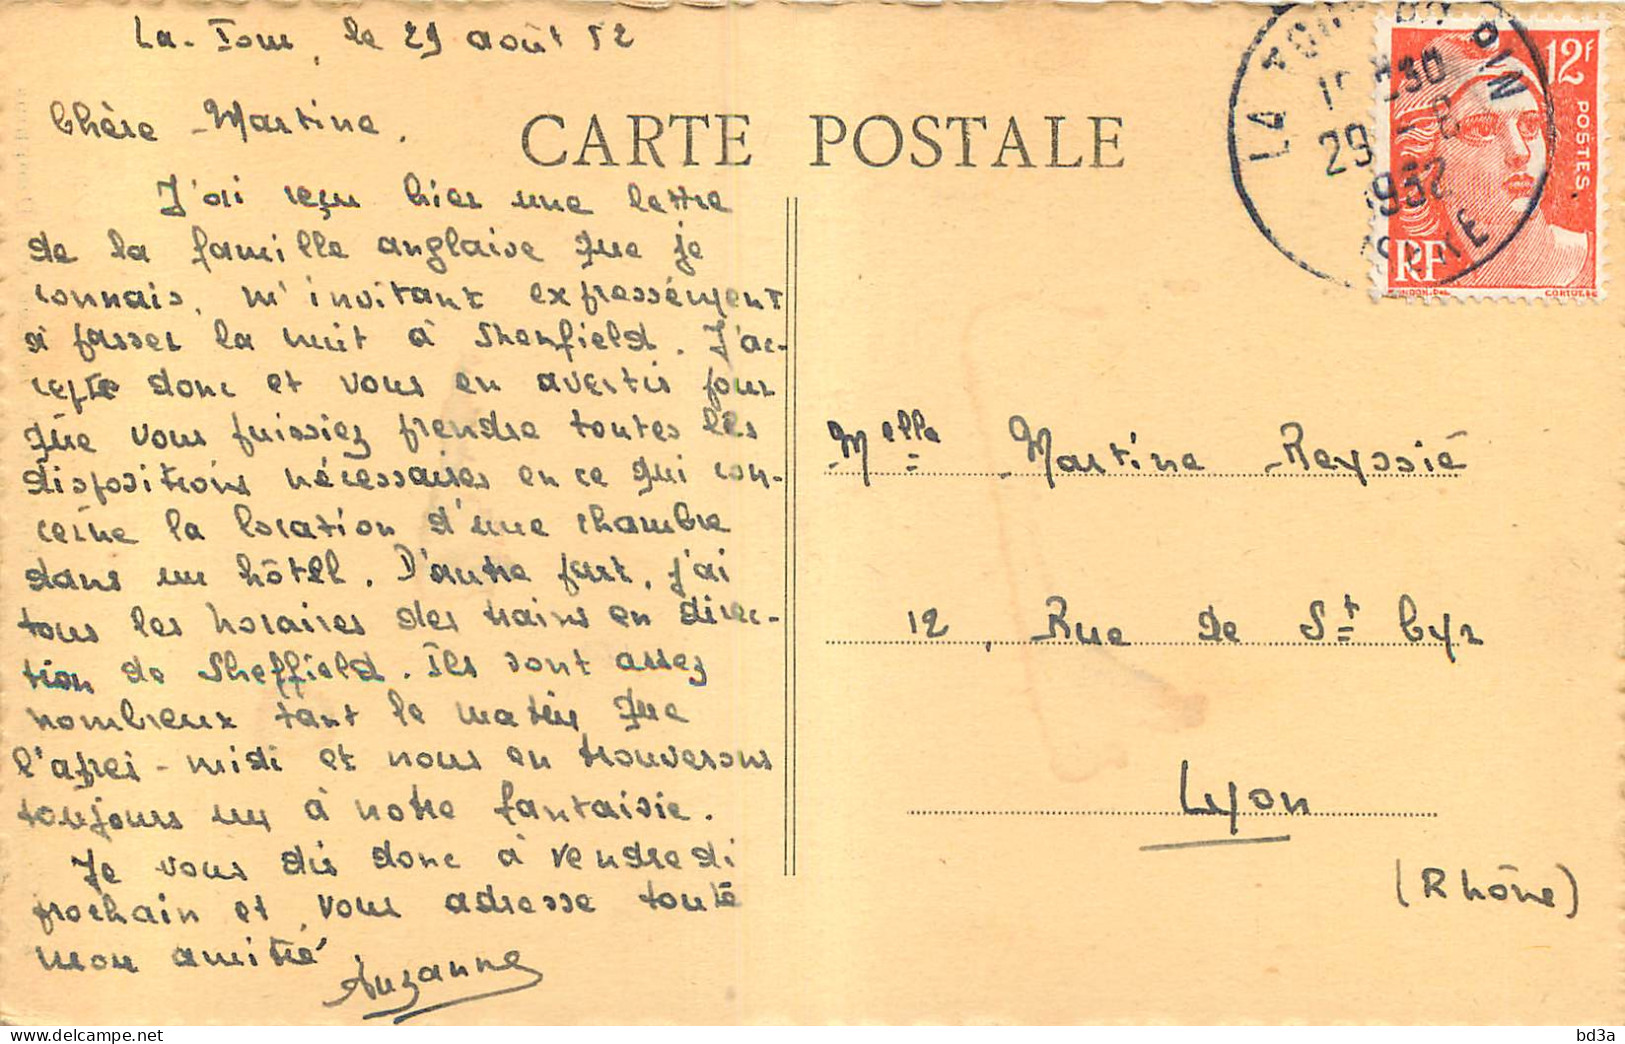 La-Tour, le 29 août 52
Chère Martine,
CARTE POSTALE
J'ai reçu hier une lettre
de la famille anglaise que je
connais, m'invitant expressément
à passer la nuit à Shenfield. J'ac-
cepte donc et vous en avertis pour
que vous puissiez prendre toutes les
dispositions nécessaires en ce qui con-
cerne la location d'une chambre
dans un hôtel. D'autre part, j'ai
tous les horaires des trains en direc-
tion de Sheffield. Ils sont assez
nombreux tant le matin que
l'après-midi et nous en trouverons
toujours un à notre fantaisie.
Je vous dis donc à vendredi
prochain et vous adresse toute
mon amitié
Suzanne
LA TOUR DU PIN
29 - 8
1952
ISERE
12F
POSTES
RF
Melle Martine Reyssié
12, Rue de St Cyr
Lyon
(Rhône)
bd3a